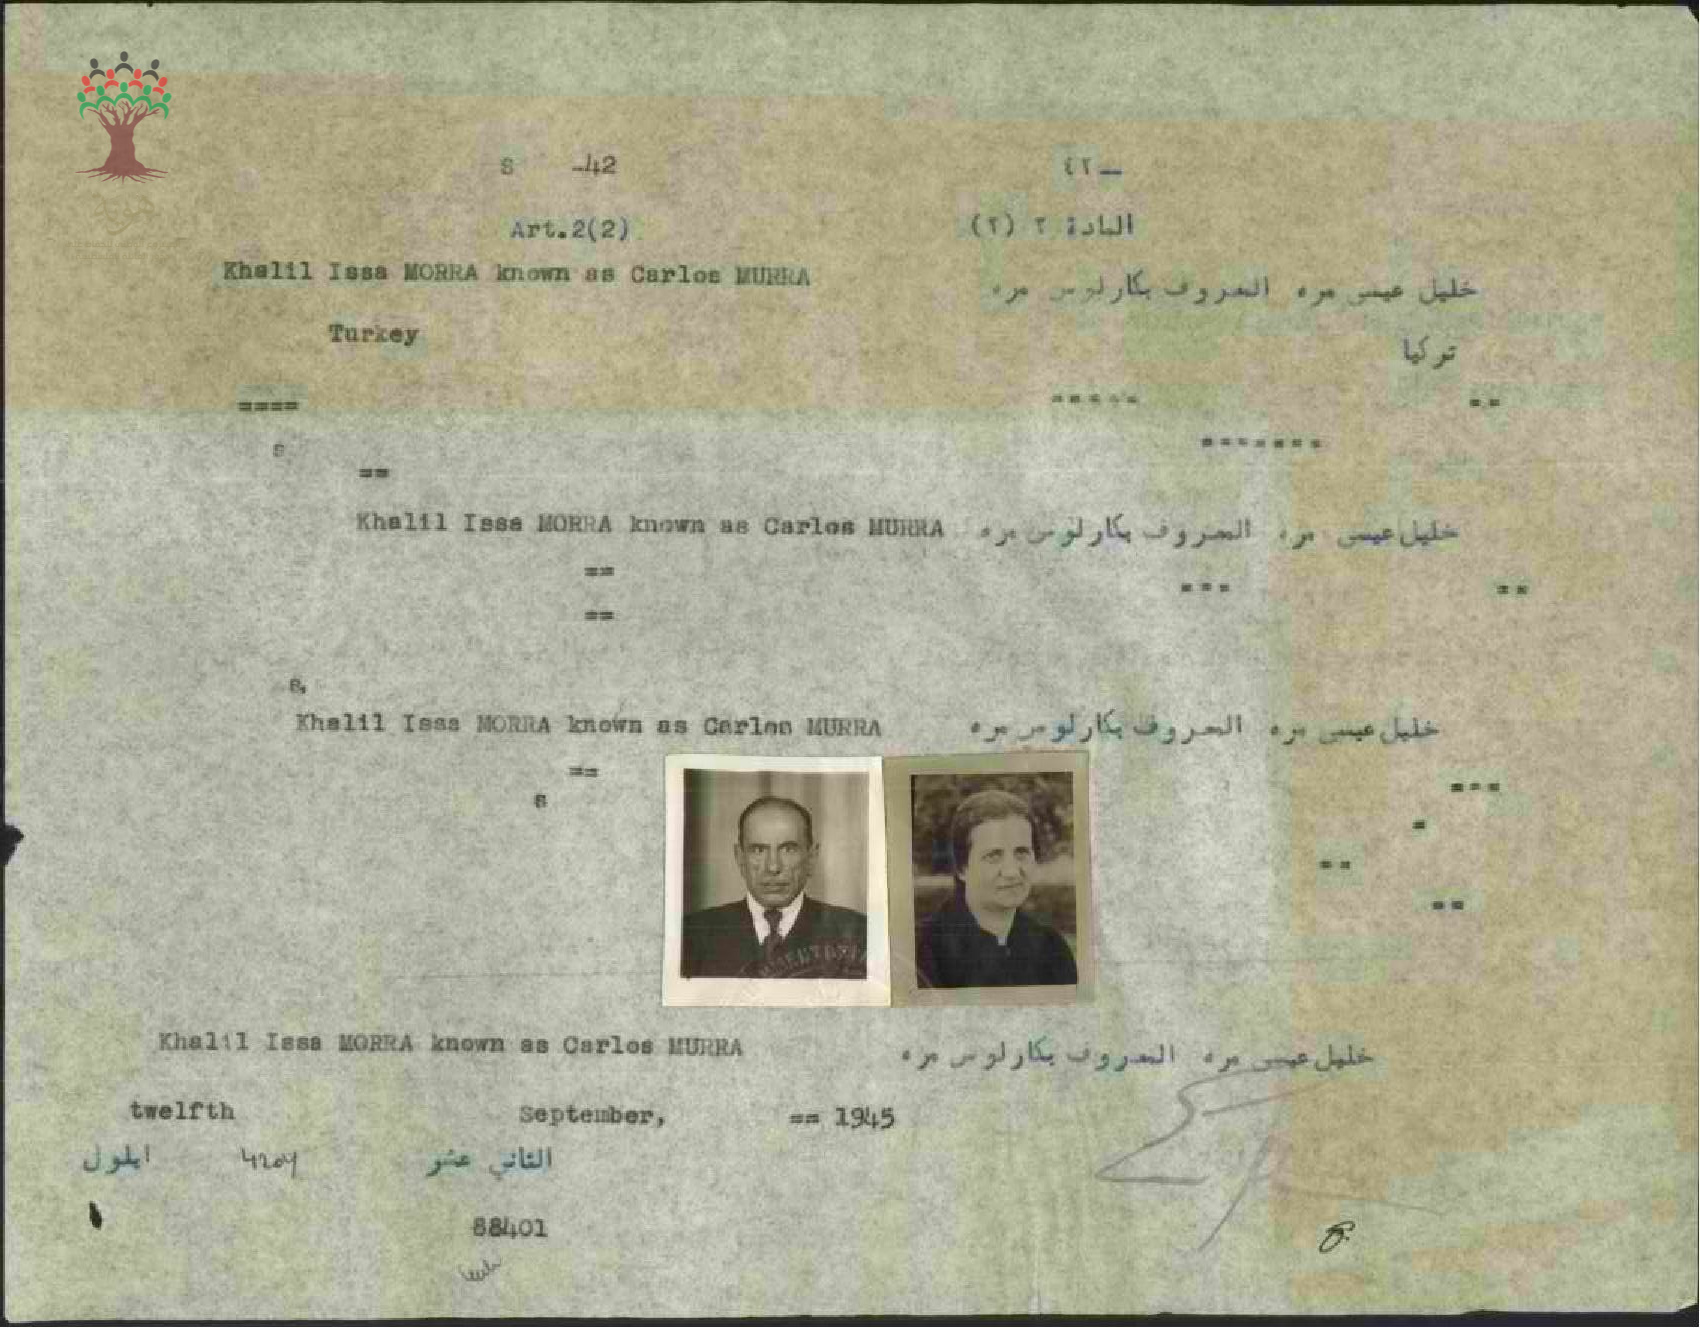 S -42
٤٢ــ
Art.2(2)
المادة ٢ (٢)
Khalil Issa MORRA known as Carlos MURRA
خليل عيسى مره المعروف بكارلوس مره
Turkey
تركيا
==== ===== ==
s =======
==
Khalil Issa MORRA known as Carlos MURRA
خليل عيسى مره المعروف بكارلوس مره
==
=== ==
==
s,
Khalil Issa MORRA known as Carlos MURRA
خليل عيسى مره المعروف بكارلوس مره
== ===
s =
==
==
Khalil Issa MORRA known as Carlos MURRA
خليل عيسى مره المعروف بكارلوس مره
twelfth September, == 1945
الثاني عشر ايلول
88401